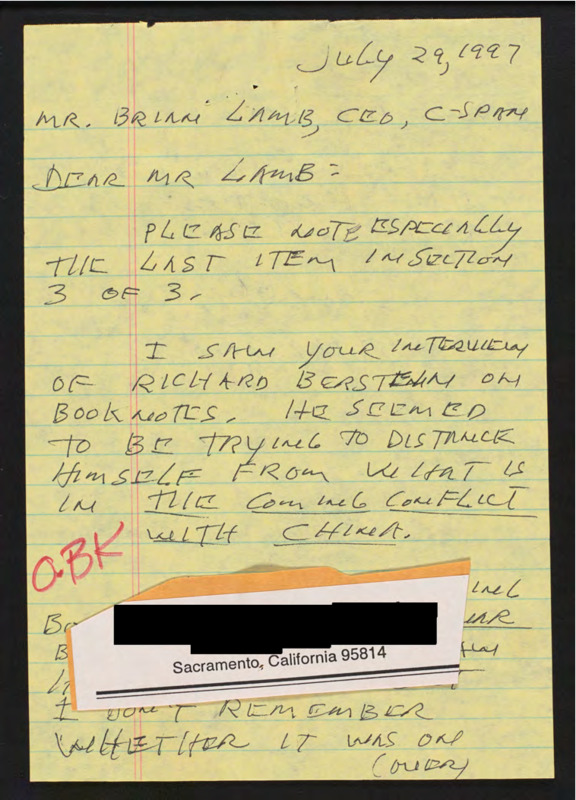 July 29, 1997
MR. BRIAN LAMB, CEO, C-SPAN
DEAR MR LAMB:
PLEASE NOTE ESPECIALLY
THE LAST ITEM IN SECTION
3 OF 3.
I SAW YOUR INTERVIEW
OF RICHARD BERSTEIN ON
BOOKNOTES. HE SEEMED
TO BE TRYING TO DISTANCE
HIMSELF FROM WHAT IS
IN THE COMING CONFLICT
WITH CHINA.
O-BK
Sacramento, California 95814
I DON'T REMEMBER
WHETHER IT WAS ON
(OVER)